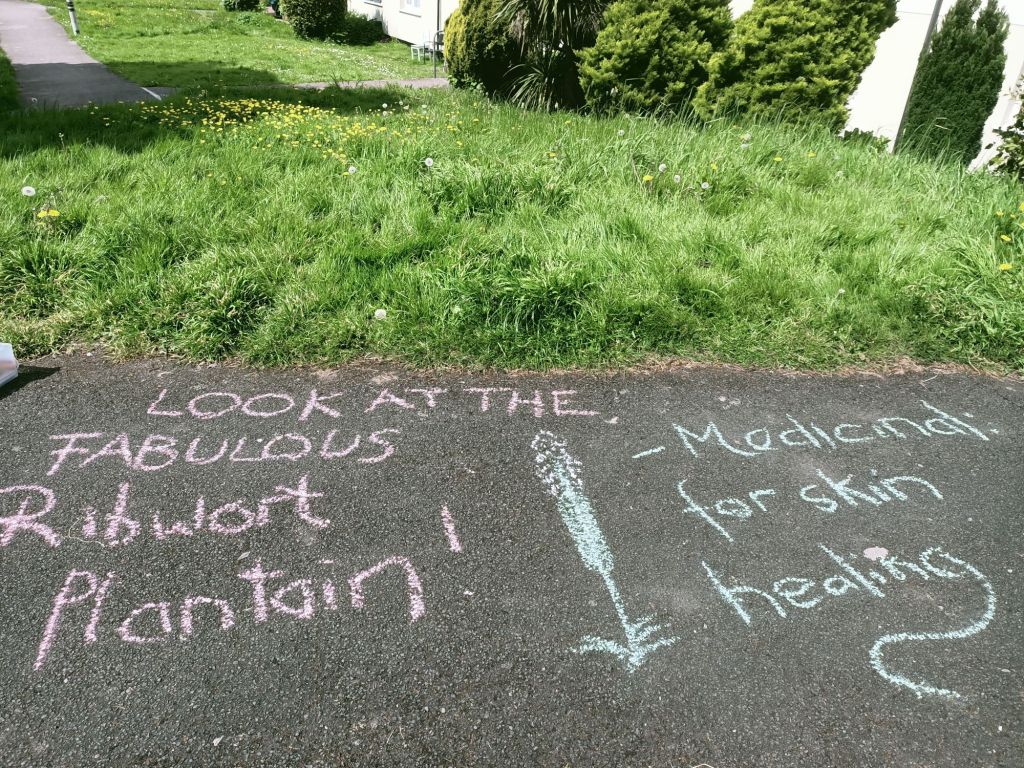 LOOK AT THE
FABULOUS
Ribwort
Plantain!
- Medicinal:
for skin
healing